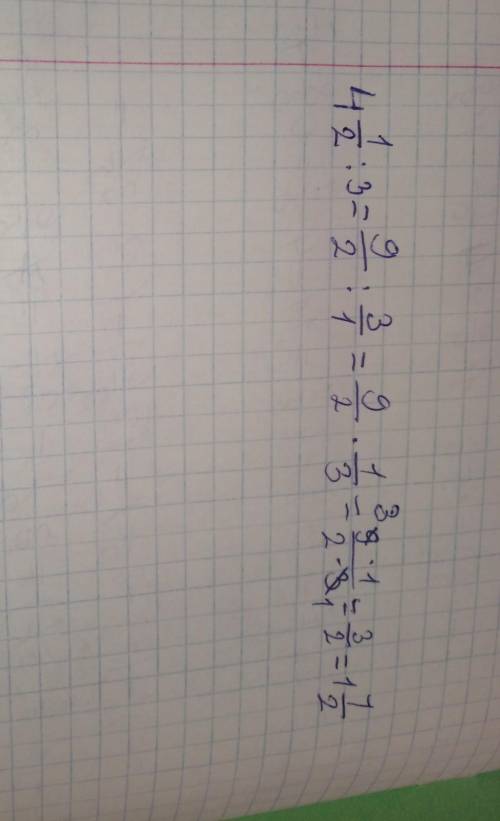 4 1/2 : 3 = 9/2 : 3/1 = 9/2 · 1/3 = 9 3 · 1 / 2 · 3 1 = 3/2 = 1 1/2